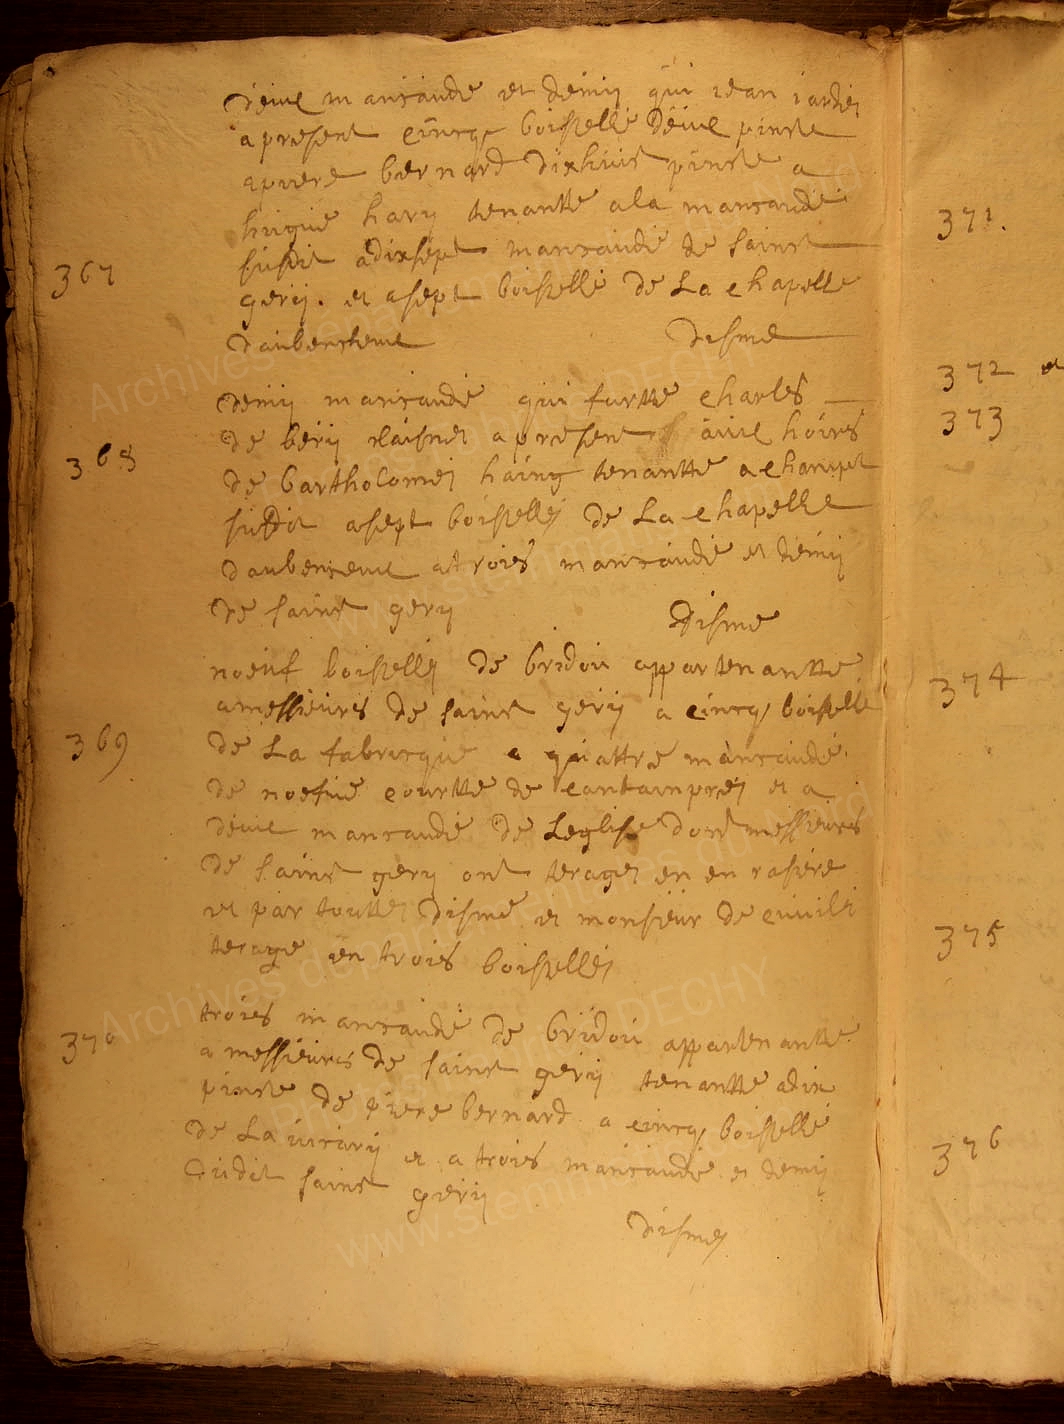 deux mancaude et demy qui iean
apresent cincq boistelle deux pinte
apiere bernard dixhuit pinte a
hugue havy tenantte ala mancaude
susdit adixsept mancaude de saint
367
gery. et asept boistelle de La chapelle
daubencheul disme
demy mancaude qui furtte charles
de bery laisnet apresent aux hoirs
368
de bartholomez haing tenantte achampt
susdit asept boistellez de La chapelle
daubenceul atrois mancaude et demy
de saint gery disme
noeuf boistellez de bridou appartenantte
amessieurs de saint gery a cincq boistelle
369
de La fabricque a quattre mancaude
de noefue courtte de cantaimprez et a
deux mancaude de Leglise dont messieurs
de saint gery ont terage en en rasiere
et par toutte disme et monsieur de
terage en trois boistellez
370
trois mancaude de bridou appartenantte
a messieurs de saint gery tenantte adix
pinte de piere bernard a cincq boistelle
de La et a trois mancaude et demy
dudit saint gery
dismez
371.
372 et
373
374
375
376
Archives départementales du Nord
www.stemma
Archives départementales du Nord
DECHY
www.stemma